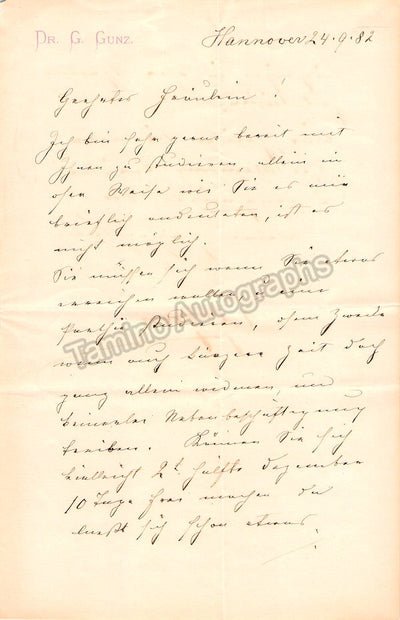 DR. G. GUNZ.
Hannover 24.9.82
Geehrtes Fräulein!
Ich bin sehr gerne bereit mit
Ihnen zu studieren, allein in
der Weise wie Sie es mir
brieflich andeuteten, ist es
nicht möglich.
Sie müssen sich wenn Sie etwas
erreichen wollen, eine
Parthie studieren, dem Zwecke
wenn auch kürzere Zeit doch
ganz allein widmen, und
keinerlei Nebenbeschäftigung
treiben. Können Sie sich
vielleicht 2te Hälfte Dezember
10 Tage frei machen da
ließe sich schon etwas
Tamino Autographs